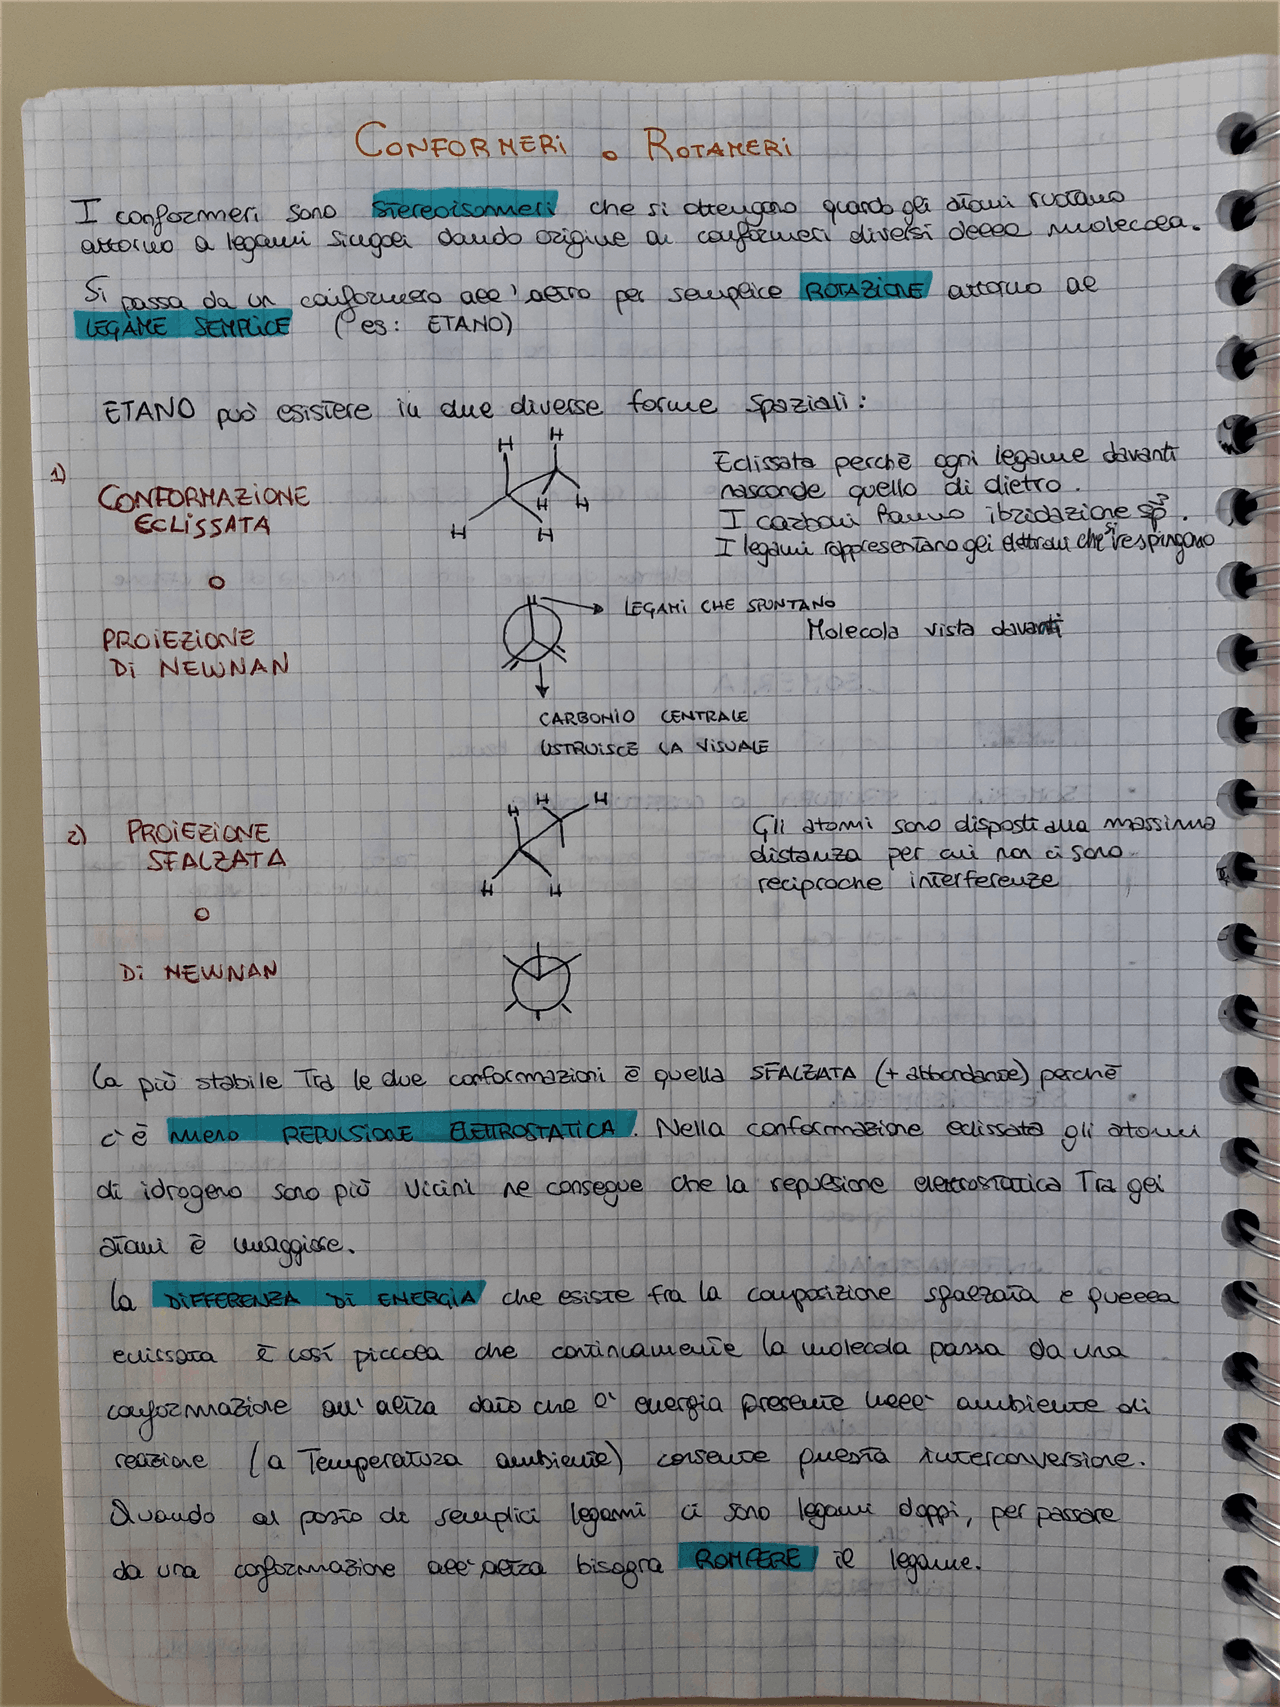 CONFORMERI o ROTAMERI
I conformeri sono stereoisomeri che si ottengono quando gli atomi ruotano
attorno a legami singoli dando origine a conformeri diversi della molecola.
Si passa da un conformero all'altro per semplice ROTAZIONE attorno al
LEGAME SEMPLICE (es: ETANO)
ETANO può esistere in due diverse forme spaziali:
1)
CONFORMAZIONE
ECLISSATA
o
PROIEZIONE
DI NEWNAN
H H
H H
H H
Eclissata perchè ogni legame davanti
nasconde quello di dietro.
I carboni hanno ibridazione sp³.
I legami rappresentano gli elettroni che si respingono
H
LEGAMI CHE SPUNTANO
Molecola vista davanti
CARBONIO CENTRALE
USTRUISCE LA VISUALE
2) PROIEZIONE
SFALZATA
o
DI NEWNAN
H H H
H H
Gli atomi sono disposti alla massima
distanza per cui non ci sono
reciproche interferenze
La più stabile tra le due conformazioni è quella SFALZATA (+ abbondante) perchè
c'è meno REPULSIONE ELETTROSTATICA. Nella conformazione eclissata gli atomi
di idrogeno sono più vicini ne consegue che la repulsione elettrostatica tra gli
atomi è maggiore.
La DIFFERENZA DI ENERGIA che esiste fra la composizione sfalzata e quella
eclissata è così piccola che continuamente la molecola passa da una
conformazione all'altra dato che l'energia presente nell'ambiente di
reazione (a temperatura ambiente) consente questa interconversione.
Quando al posto di semplici legami ci sono legami doppi, per passare
da una conformazione all'altra bisogna ROMPERE il legame.